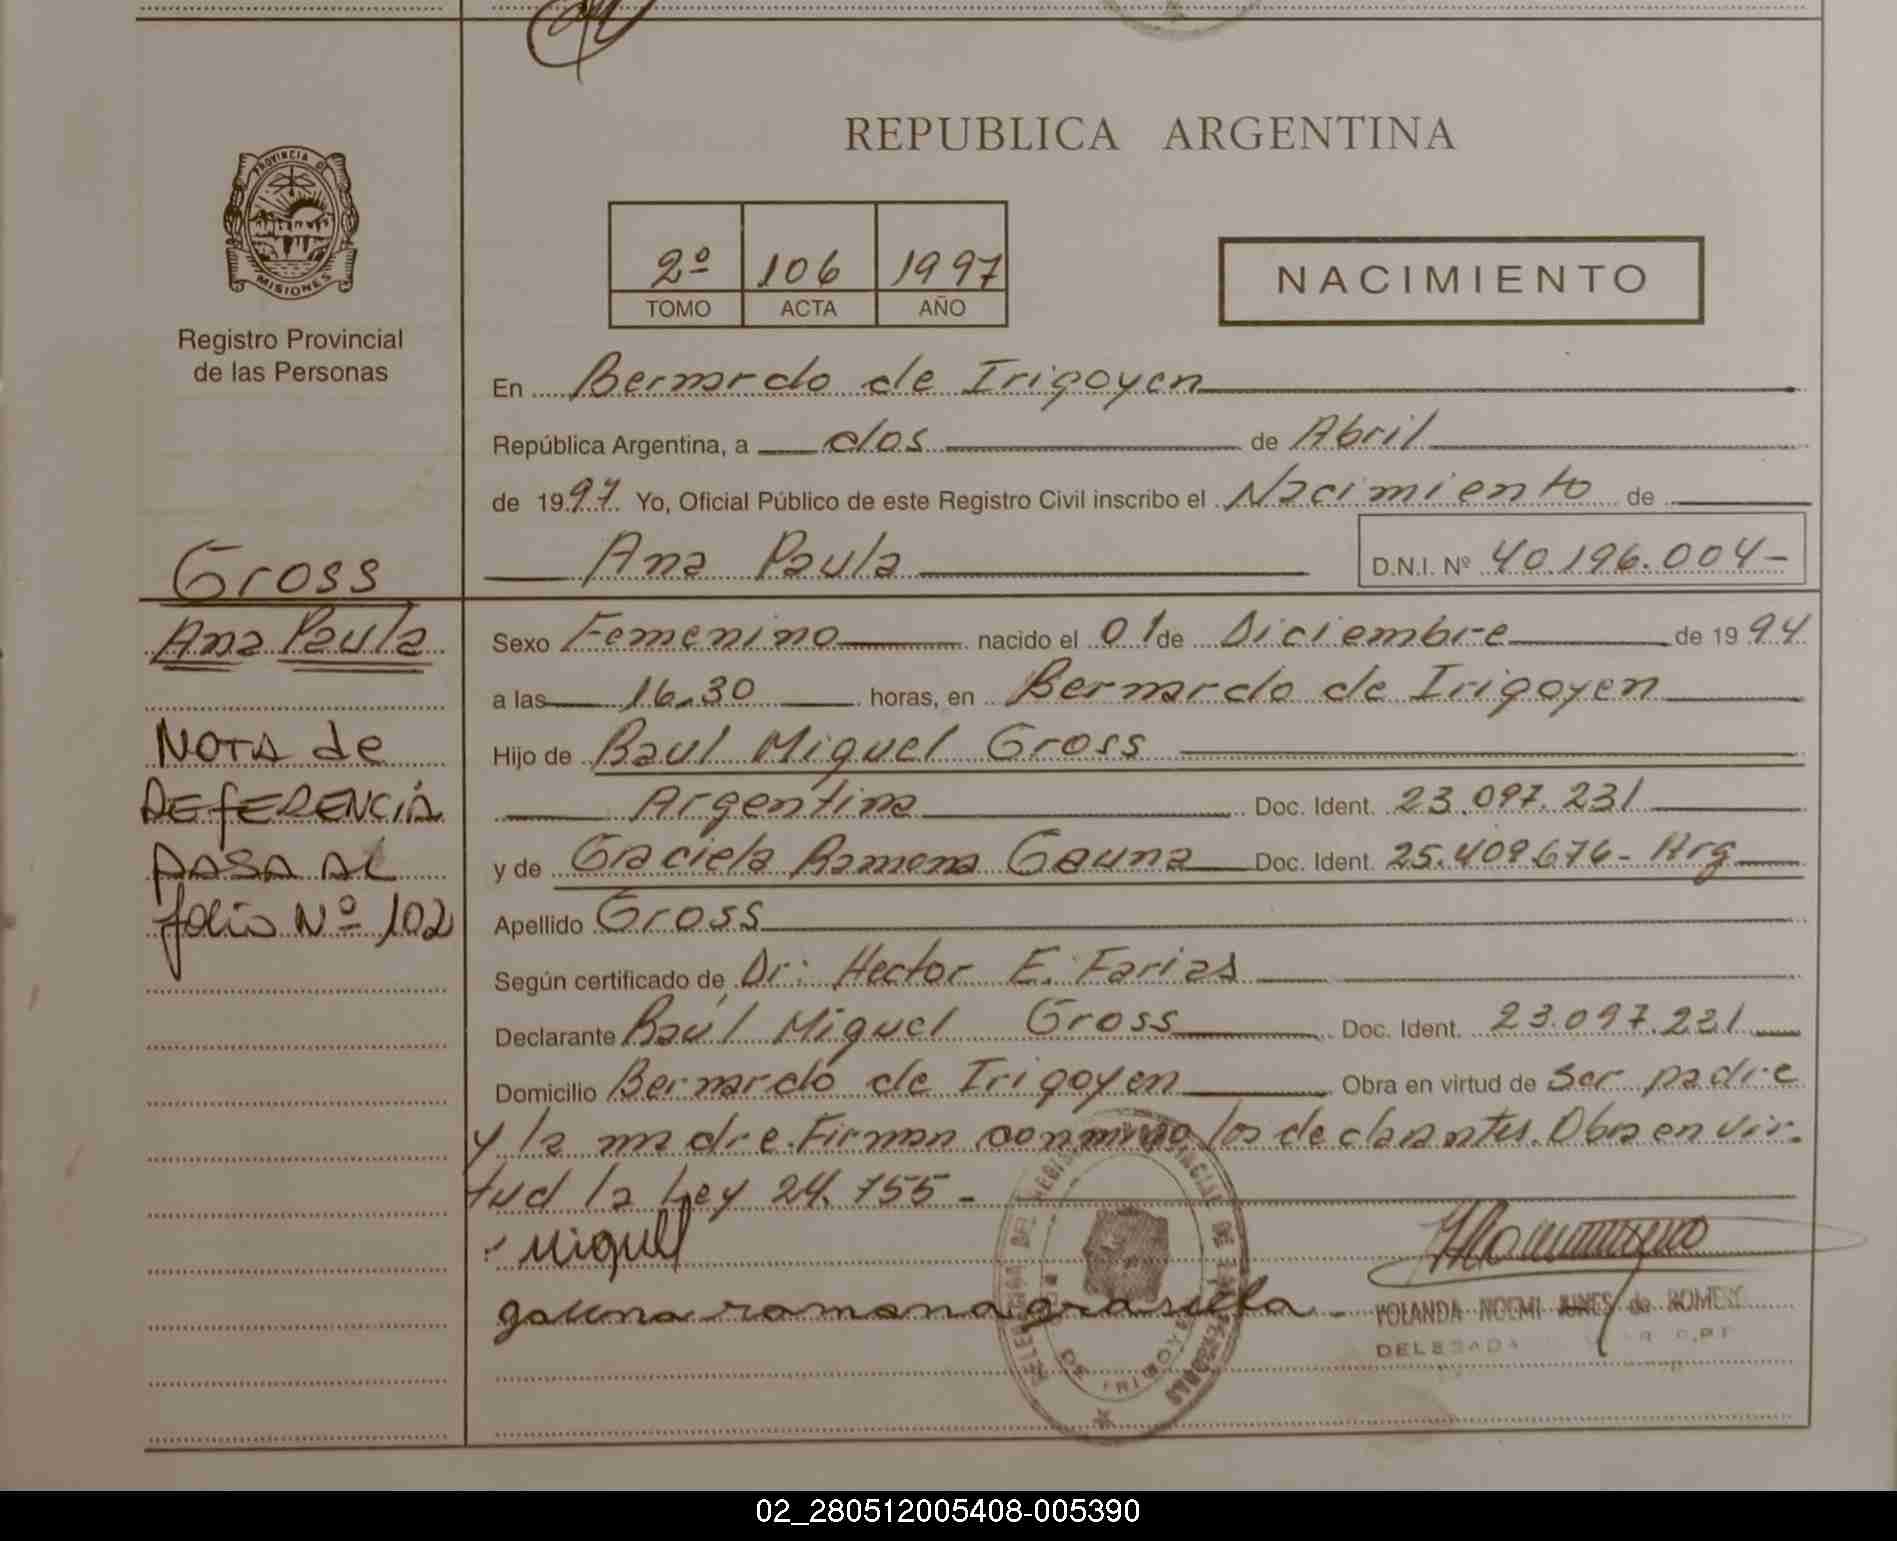 REPUBLICA ARGENTINA
PROVINCIA DE MISIONES
Registro Provincial
de las Personas
2º 106 1997
TOMO ACTA AÑO
NACIMIENTO
En Bernardo de Irigoyen
República Argentina, a dos de Abril
de 1997. Yo, Oficial Público de este Registro Civil inscribo el Nacimiento de
Ana Paula D.N.I. Nº 40.196.004-
Gross
Ana Paula
NOTA de
REfERENCIA
PASA AL
folio Nº 102
Sexo Femenino nacido el 01 de Diciembre de 1994
a las 16,30 horas, en Bernardo de Irigoyen
Hijo de Raul Miguel Gross
Argentina Doc. Ident. 23.097.231
y de Graciela Ramona Gauna Doc. Ident. 25.409.676- Arg
Apellido Gross
Según certificado de Dr: Hector E. Farias
Declarante Raúl Miguel Gross Doc. Ident. 23.097.231
Domicilio Bernardo de Irigoyen Obra en virtud de ser padre
y la madre. Firman conmigo los declarantes. Obra en vir-
tud la Ley 24.755-
Miguel
gauna ramona grasiela -
YOLANDA NOEMI de
DELEGADA
02_280512005408-005390